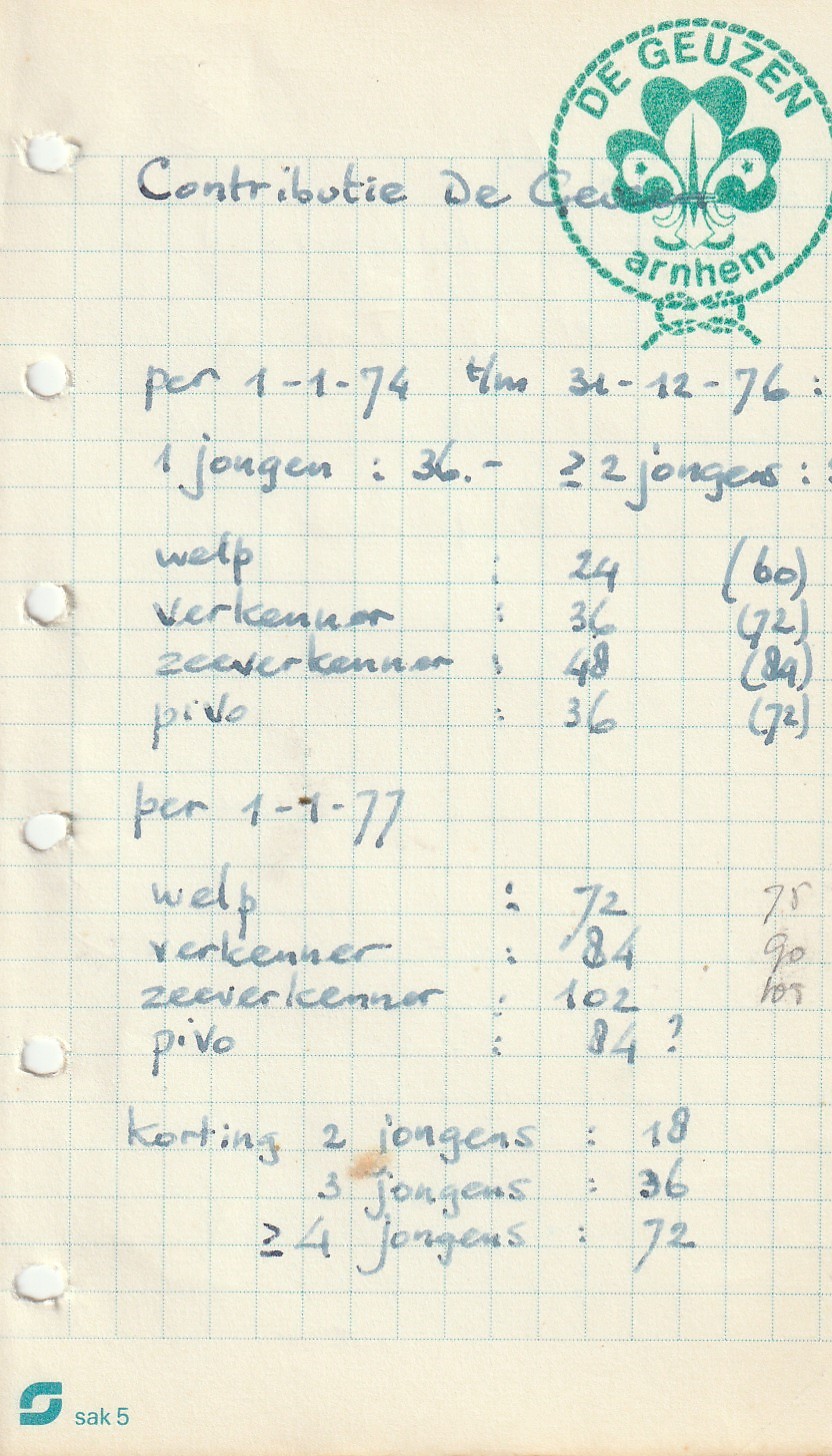 DE GEUZEN
arnhem
Contributie De Geuzen
per 1-1-74 t/m 31-12-76 :
1 jongen : 36.- ≥ 2 jongens :
welp : 24 (60)
verkenner : 36 (72)
zeeverkenner : 48 (84)
pivo : 36 (72)
per 1-1-77
welp : 72 75
verkenner : 84 90
zeeverkenner : 102 105
pivo : 84 ?
korting 2 jongens : 18
3 jongens : 36
≥ 4 jongens : 72
sak 5